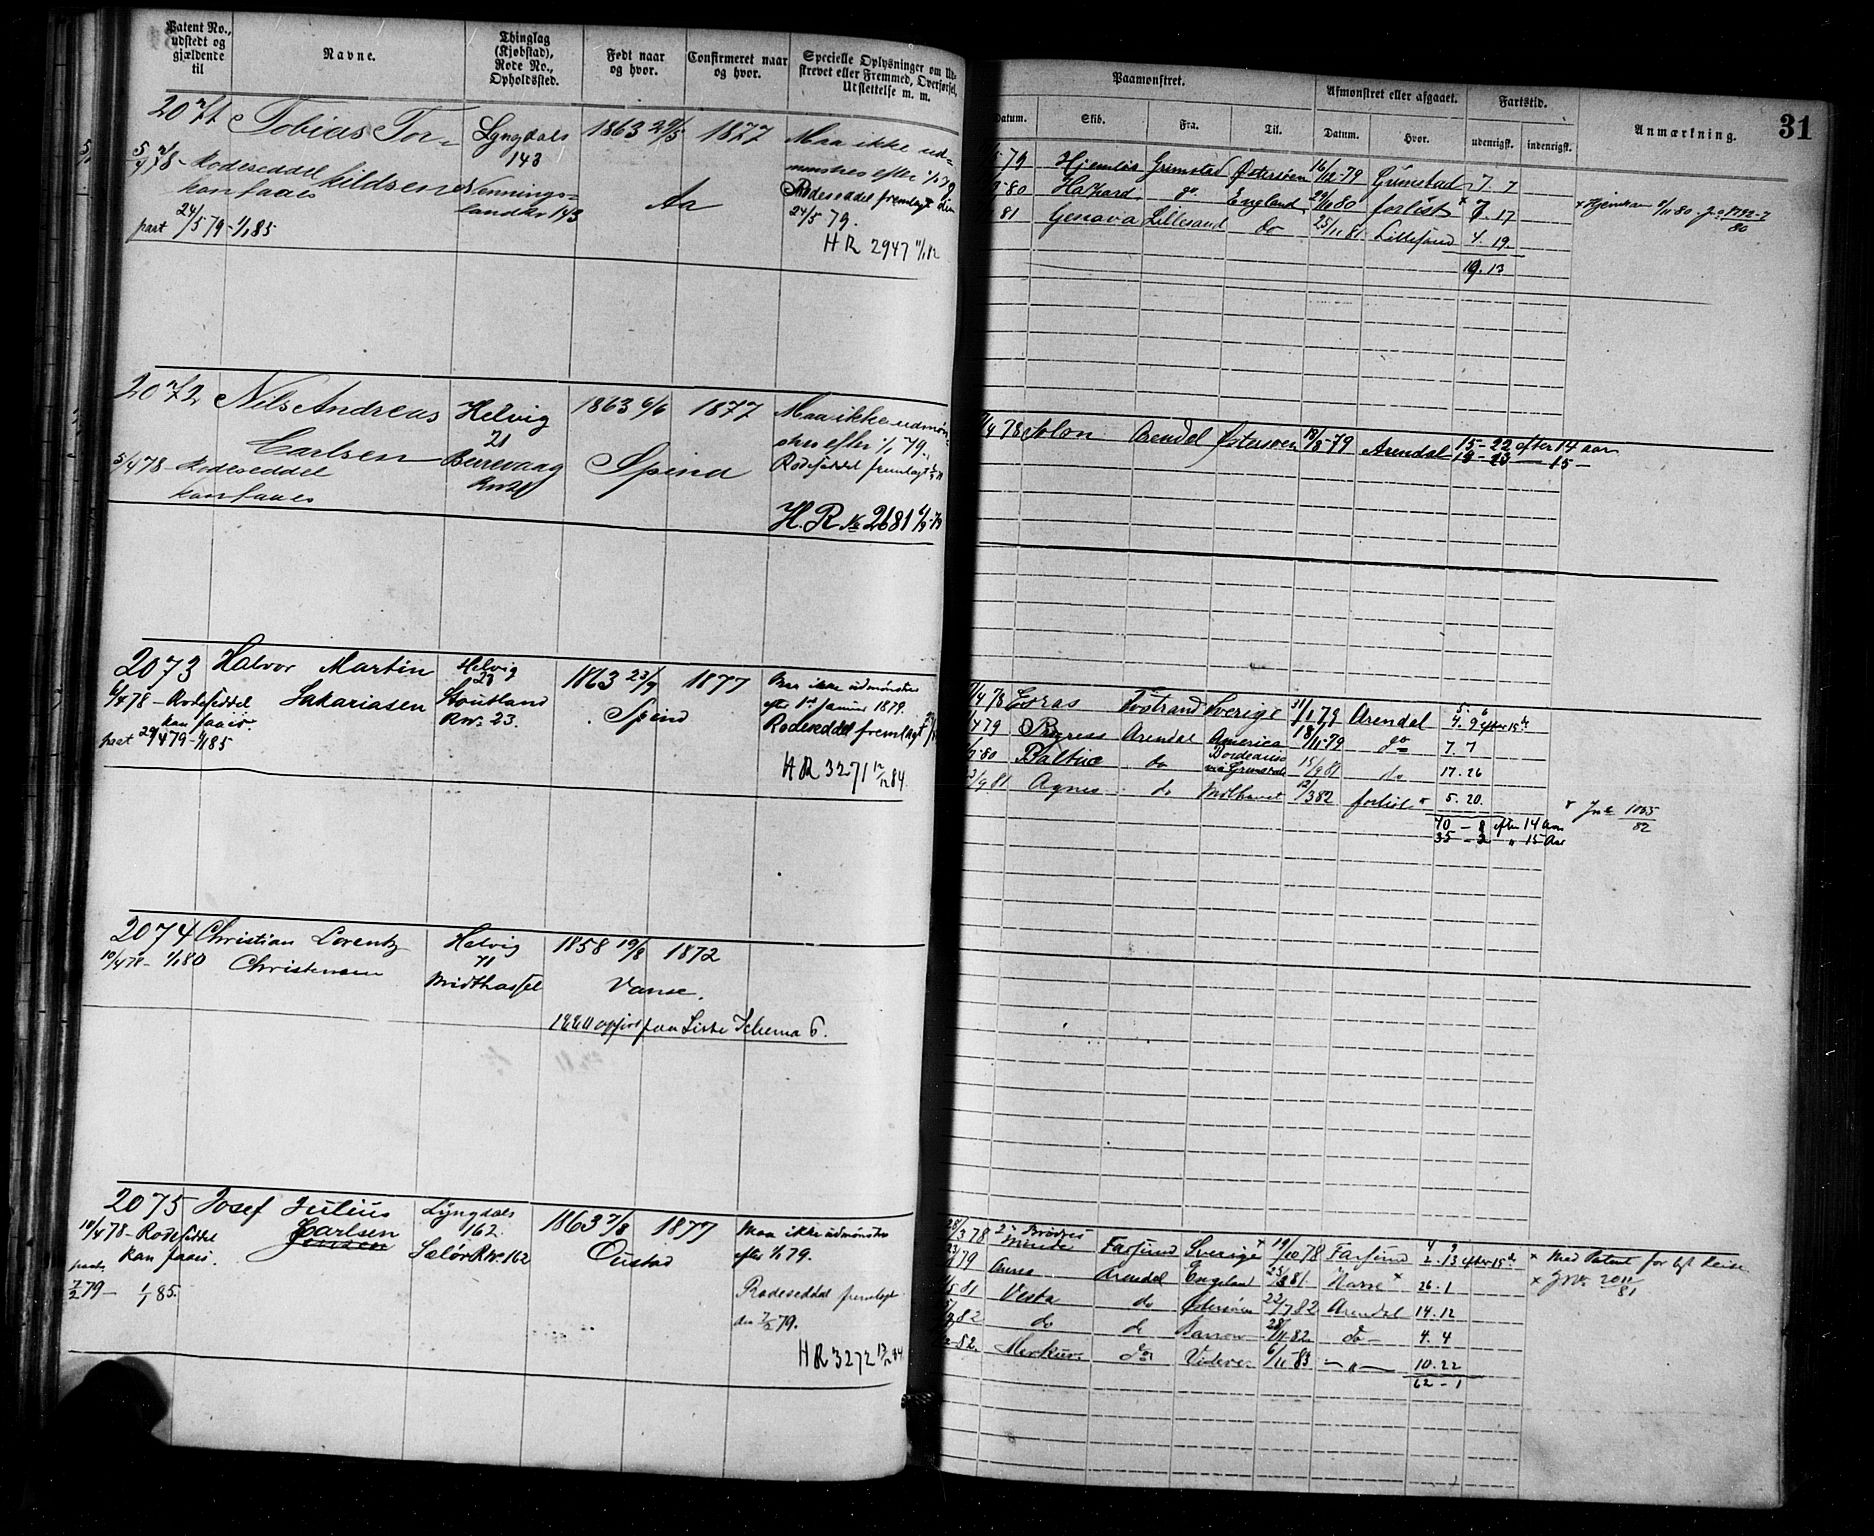 Patent No., udstedt og gjældende til
Navne.
Thinglag (Kjøbstad), Rode No., Opholdssted.
Født naar og hvor.
Confirmeret naar og hvor.
Specielle Oplysninger om Udstrevet eller Fremmed, Overførsel, Utslettelse m. m.
Paamønstret.
Afmønstret eller afgaaet.
Fartstid.
Anmærkning.
31
Datum.
Skib.
Fra.
Til.
Datum.
Hvor.
udenrigsk.
indenrigsk.
2071 Tobias Tor- Lyngdals 1863 29/5 1877 Maa ikke ud-
143 mønstres efter 1/1 79
Rodeseddel kildsen Nennings- Aa Rodeseddel fremlagt den
kan faaes landkr 143 24/5 79.
pact 24/5 79-1/1 85 HR 2947 11/1 82
79 Hjemlös Grimstad Østersöen 16/12 79 Grimstad 7. 7
80 Hazard do England 29/10 80 forlist × 7. 17
81 Genova Lillesand do 25/11 81 Lillesand 4. 19.
19. 13
2072 Nils Andreas Helvig 1863 6/6 1877 Maa ikke udmøn-
Carlsen 21 stres efter 1/1 79.
5/4 78 Rodeseddel Berrevaag Spind Rodeseddel fremlagt
kan faaes Rn 21
H. R No 2681
78 Solon Arendel Østersøen 18/8-79 Arendal 15-22 efter 14 aar
13-23 — 15 —
2073 Halvor Martin Helvig 1863 23/9 1877 Maa ikke udmønstres
23 efter 1st Januar 1879.
6/4 78 - Rodeseddel Sakariasen Stoutland Spind Rodeseddel fremlagt
kan faaes. Rnr. 23.
pact 29/4 79-1/1 85
HR 3271 12/12 84.
4 78 Esras Tvestrand Sverige 31/1 79 Arendal 4. 9 efter 15de
4 79 Progress Arendal America 18/11-79 do 7. 7
80 Baltic do Bordeaux via Grimstad 15/9 81 do 17. 26
9 81 Agnes do Midhavet 12/3 82 forlist × 5. 20.
40 - 8 efter 14 Aar
35 - 2 " 15 Aar
× Jne 1065/82
2074 Christian Lorentz Helvig 1858 19/8 1872
10/4 78- 1/1 80 Christensen 71
Midthassel Vanse.
1880 opført paa Liste Schema 6.
2075 Josef Julius Lyngdals 1863 7/8 1877 Maa ikke udmønstres
Carlsen 162. efter 1/1 79.
10/4 78- Rodeseddel Jensen Selör Rnr. 162 Oustad
kan faaes.
pact. 7/2 79 - 1/1 85. Rodeseddel fremlagt
den 7/2 79.
HR 3272 12/12 84
28/3 78 2 Brødres Minde Farsund Sverige × 19/10 78 Farsund 2. 13 efter 15de × Med Patent for
79 Aurea Arendel England 25/3 81. Havre × 26. 1 × JNr. 2011/81
81 Vesta do Østersöen 22/7 82 Arendal 14. 12
82 do do Barrow 28/11 82 do - 4. 4
82. Merkur. do Videre. 6/11 83 — " — 10. 22
62 - 1